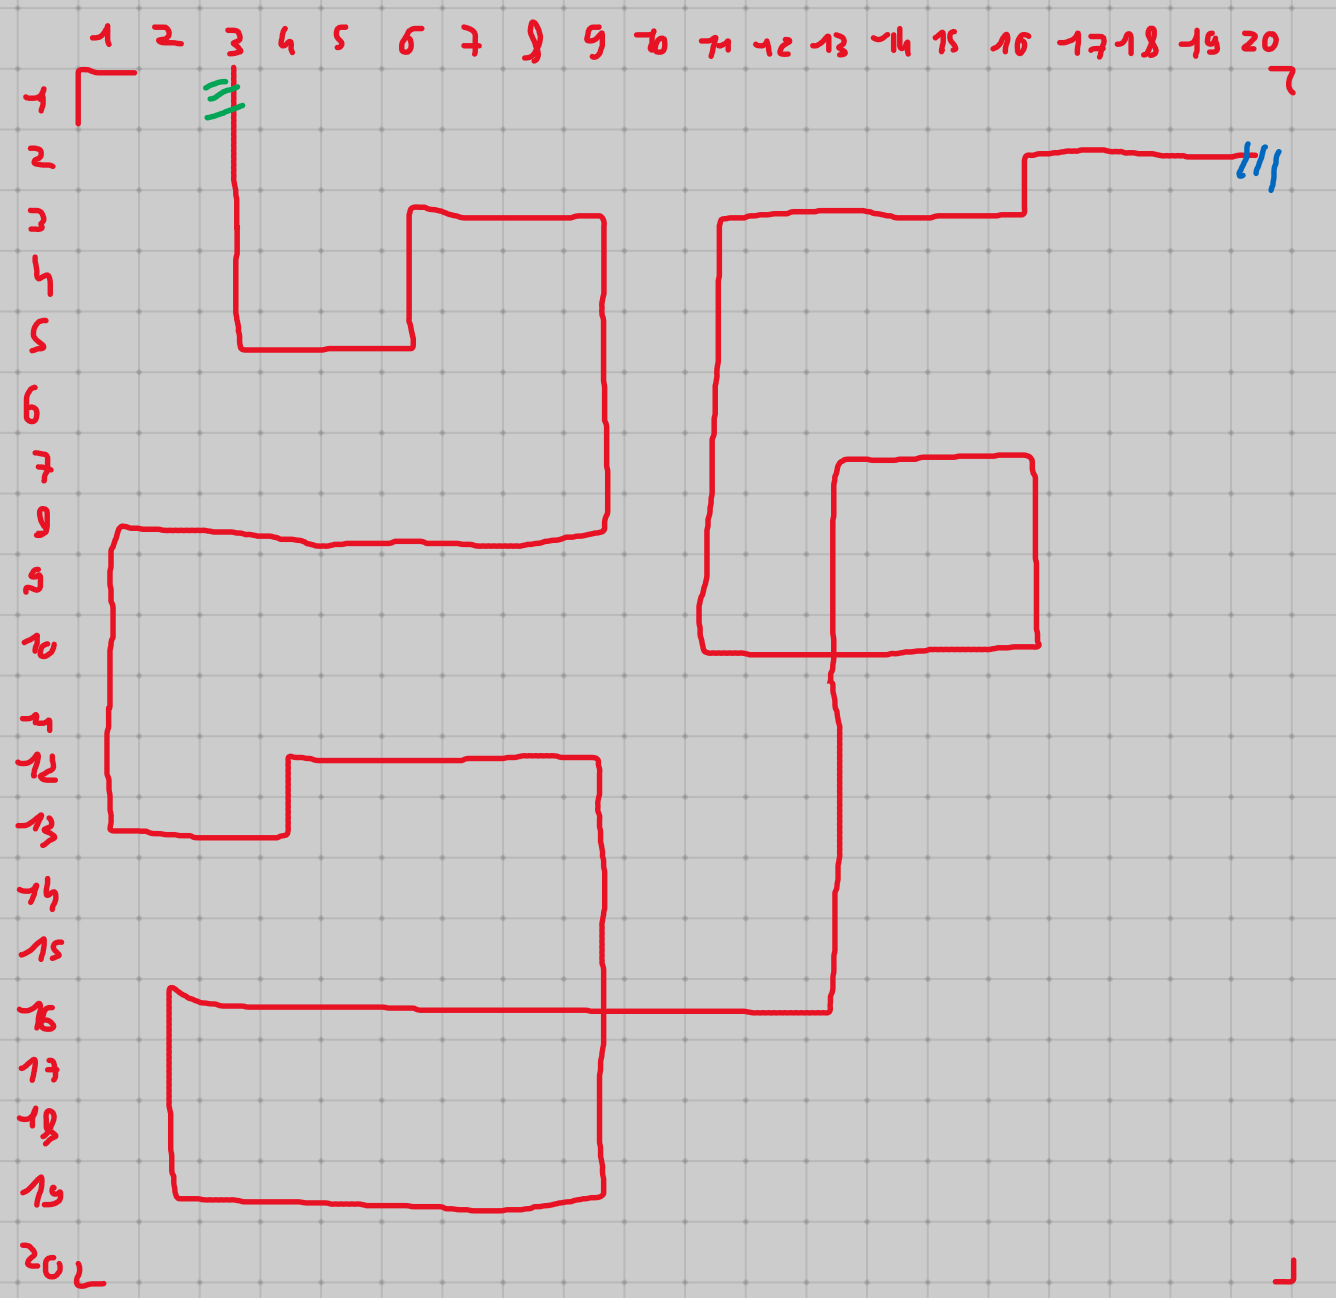 1 2 3 4 5 6 7 8 9 10 11 12 13 14 15 16 17 18 19 20
1
2
3
4
5
6
7
8
9
10
11
12
13
14
15
16
17
18
19
20